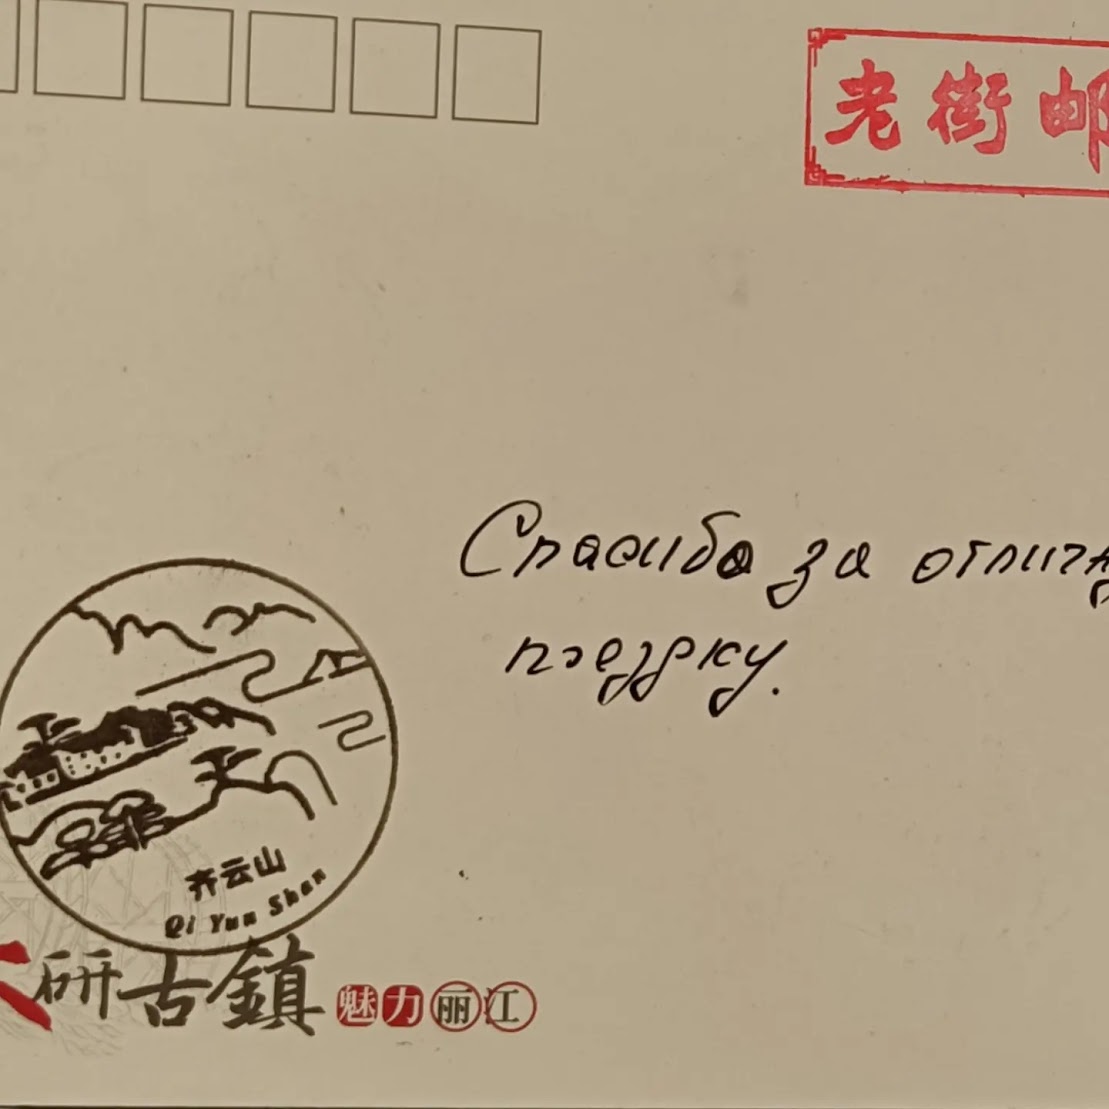 老街邮
Спасибо за отличну
поездку.
齐云山
Qi Yun Shan
大研古鎮 魅力丽江